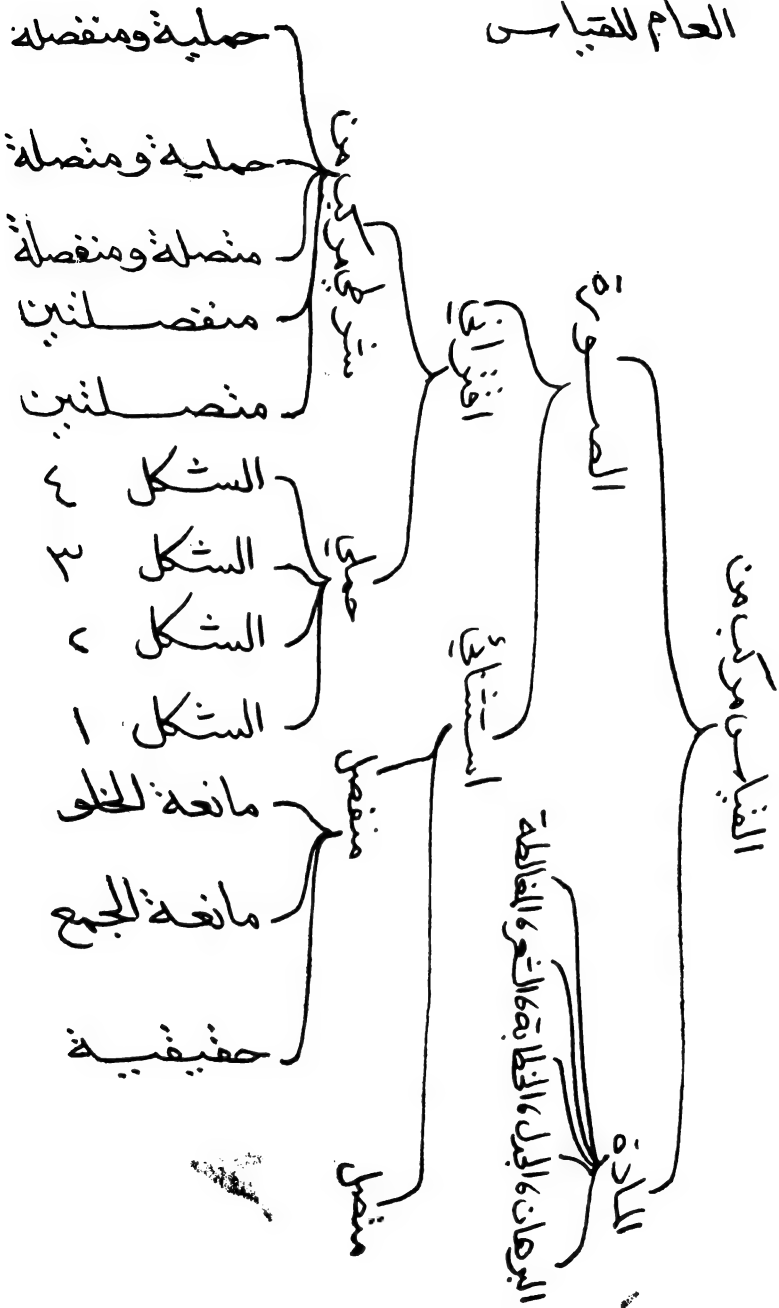 العام للقياس
القياس مركب من
الصورة
المادة
اقتراني
استثنائي
البرهان، الجدل، الخطابة، الشعر، المغالطة
شرطي مركب من
حملي
منفصل
متصل
حملية ومنفصلة
حملية ومتصلة
متصلة ومنفصلة
منفصلتين
متصلتين
الشكل ٤
الشكل ٣
الشكل ٢
الشكل ١
مانعة الخلو
مانعة الجمع
حقيقية